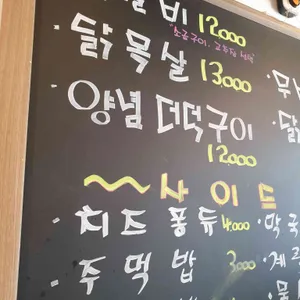 갈비 12,000
"소금구이, 고추장 선택"
· 닭목살 13,000
· 양념 더덕구이
12,000
사이드
· 치즈퐁듀 4,000 · 막국
· 주먹밥 3000 · 계란